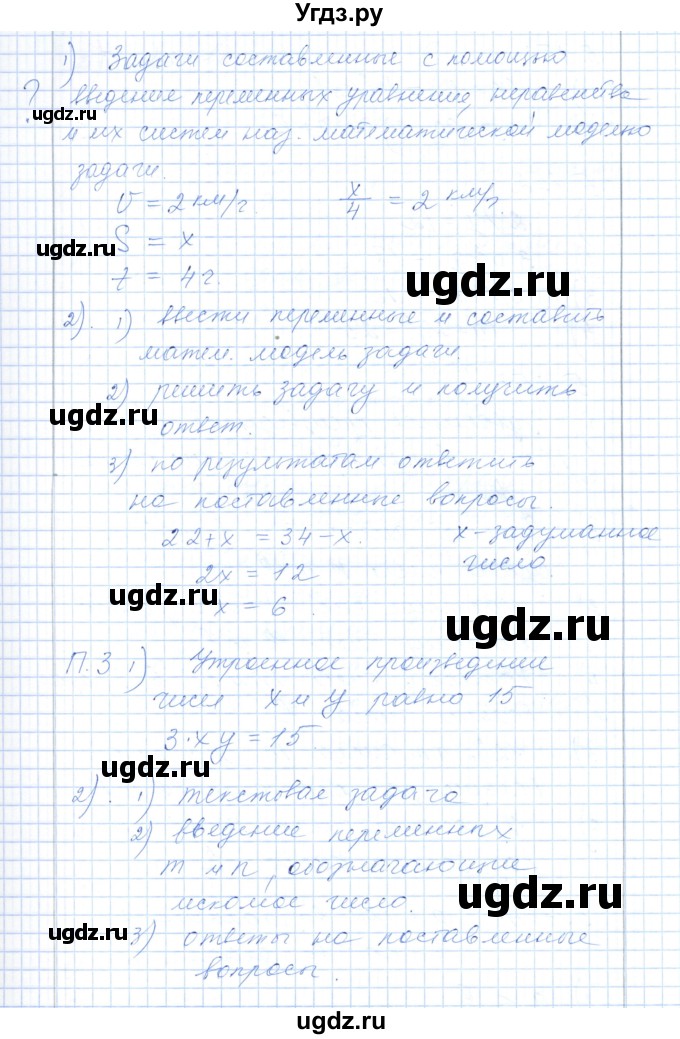 Угдз.ру
1) Задачи составленные с помощью
? введение переменных уравнение, неравенства
ugdz.ru
и их систем наз. математической моделью
задачи.
V = 2 км/г. x/4 = 2 км/г.
S = x
ugdz.ru
t = 4 г.
ugdz.ru
2). 1) ввести переменные и составить
матем. модель задачи.
2) решить задачу и получить
ugdz.ru
ответ.
3) по результатам ответить
на поставленные вопросы.
22+x = 34-x. x-задуманное
2x = 12 число
ugdz.ru
x = 6.
ugdz.ru
П.3 1) Утроенное произведение
чисел x и y равно 15
3·xy = 15.
ugdz.ru
2). 1) текстовая задача
2) введение переменных
m и n, обозначающие
ugdz.ru
искомое число.
ugdz.ru
3) ответы на поставленные
вопросы.
ugdz.ru